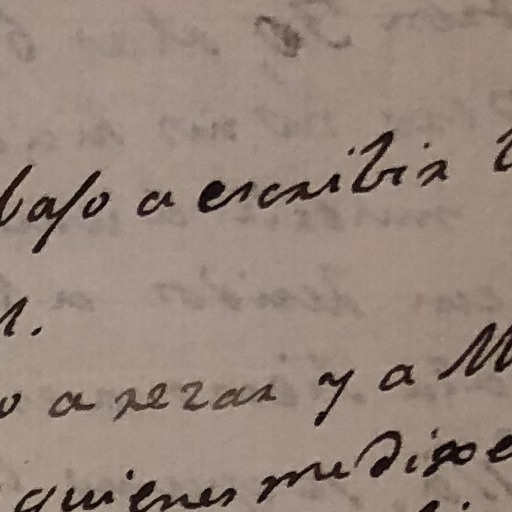 bajo a escribir
a rezar y a M
quienes me dixe